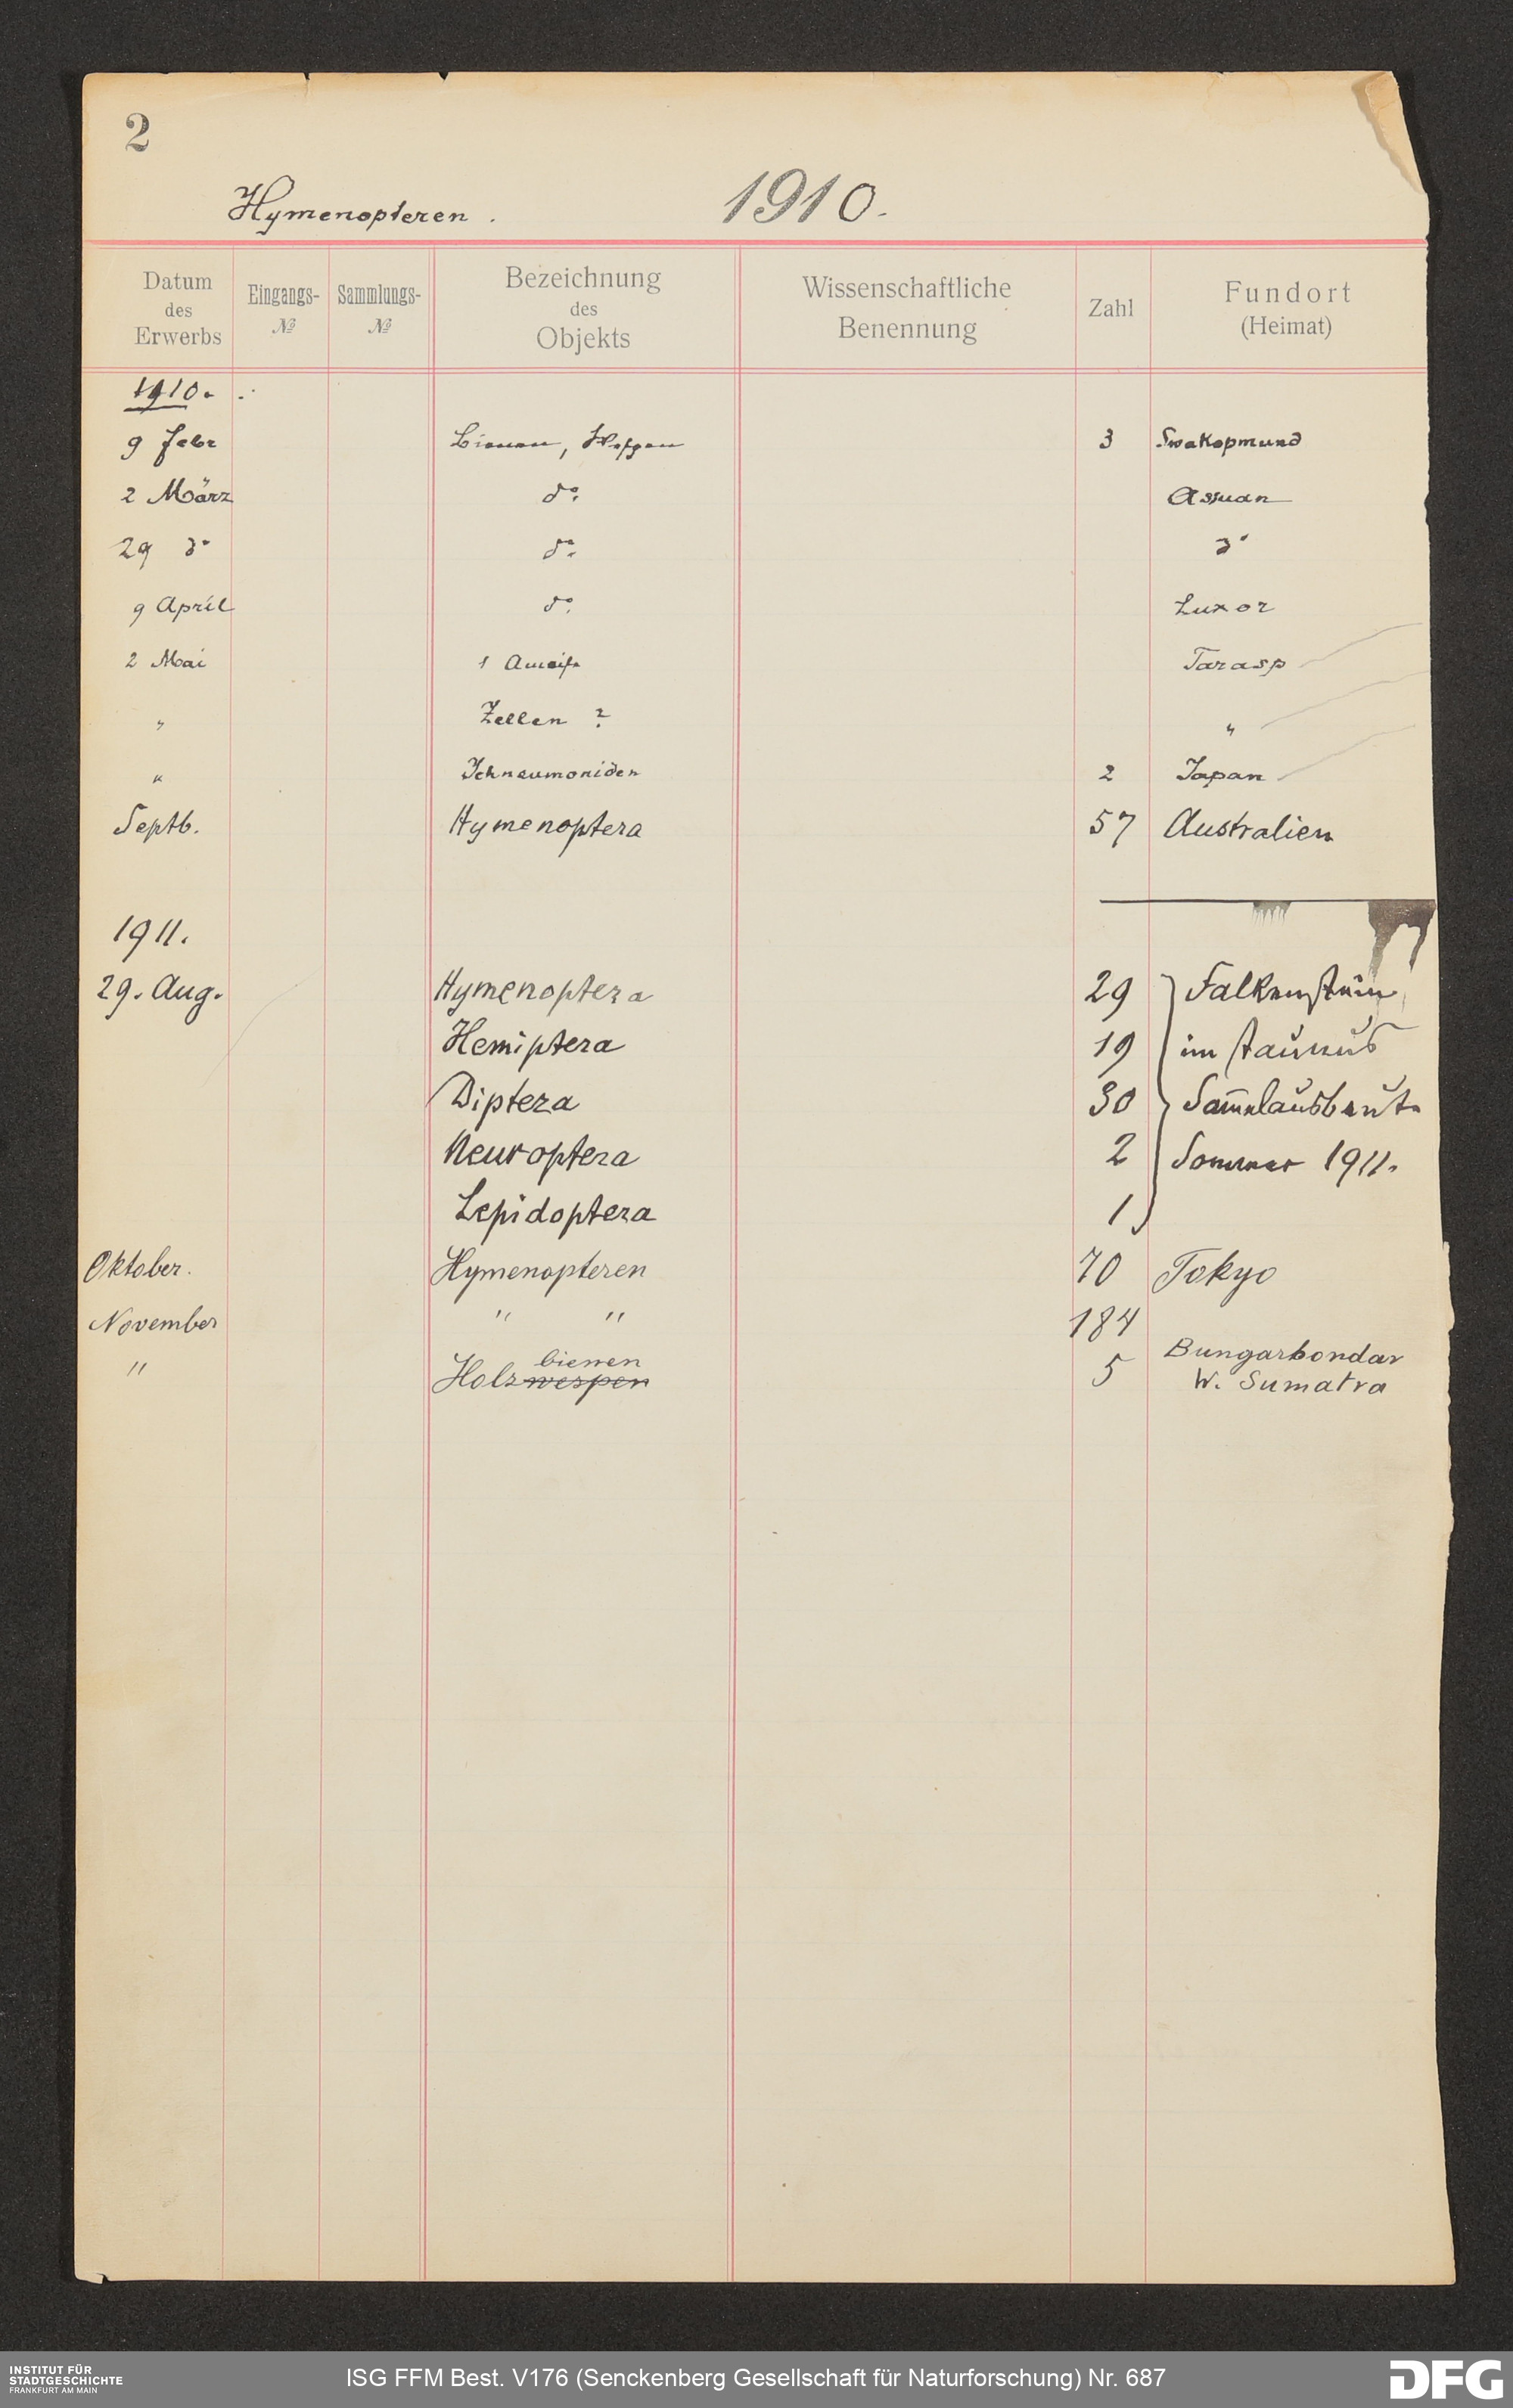 2
Hymenopteren. 1910.
Datum des Erwerbs Eingangs-№ Sammlungs-№ Bezeichnung des Objekts Wissenschaftliche Benennung Zahl Fundort (Heimat)
1910.
9 Febr Bienen, Wespen 3 Swakopmund
2 März do. Assuan
29 do do. do
9 April do. Luxor
2 Mai 1 Ameise Tarasp
" Zellen ? "
" Ichneumoniden 2 Japan
Septb. Hymenoptera 57 Australien
1911.
29. Aug. Hymenoptera 29 Falkenstein
Hemiptera 19 im Taunus
Diptera 30 Sam̅elausbeute
Neuroptera 2 Sommer 1911.
Lepidoptera 1
Oktober. Hymenopteren 70 Tokyo
November " " 184
" Holzwespen bienen 5 Bungarbondar
W. Sumatra
INSTITUT FÜR
STADTGESCHICHTE
FRANKFURT AM MAIN
ISG FFM Best. V176 (Senckenberg Gesellschaft für Naturforschung) Nr. 687
DFG